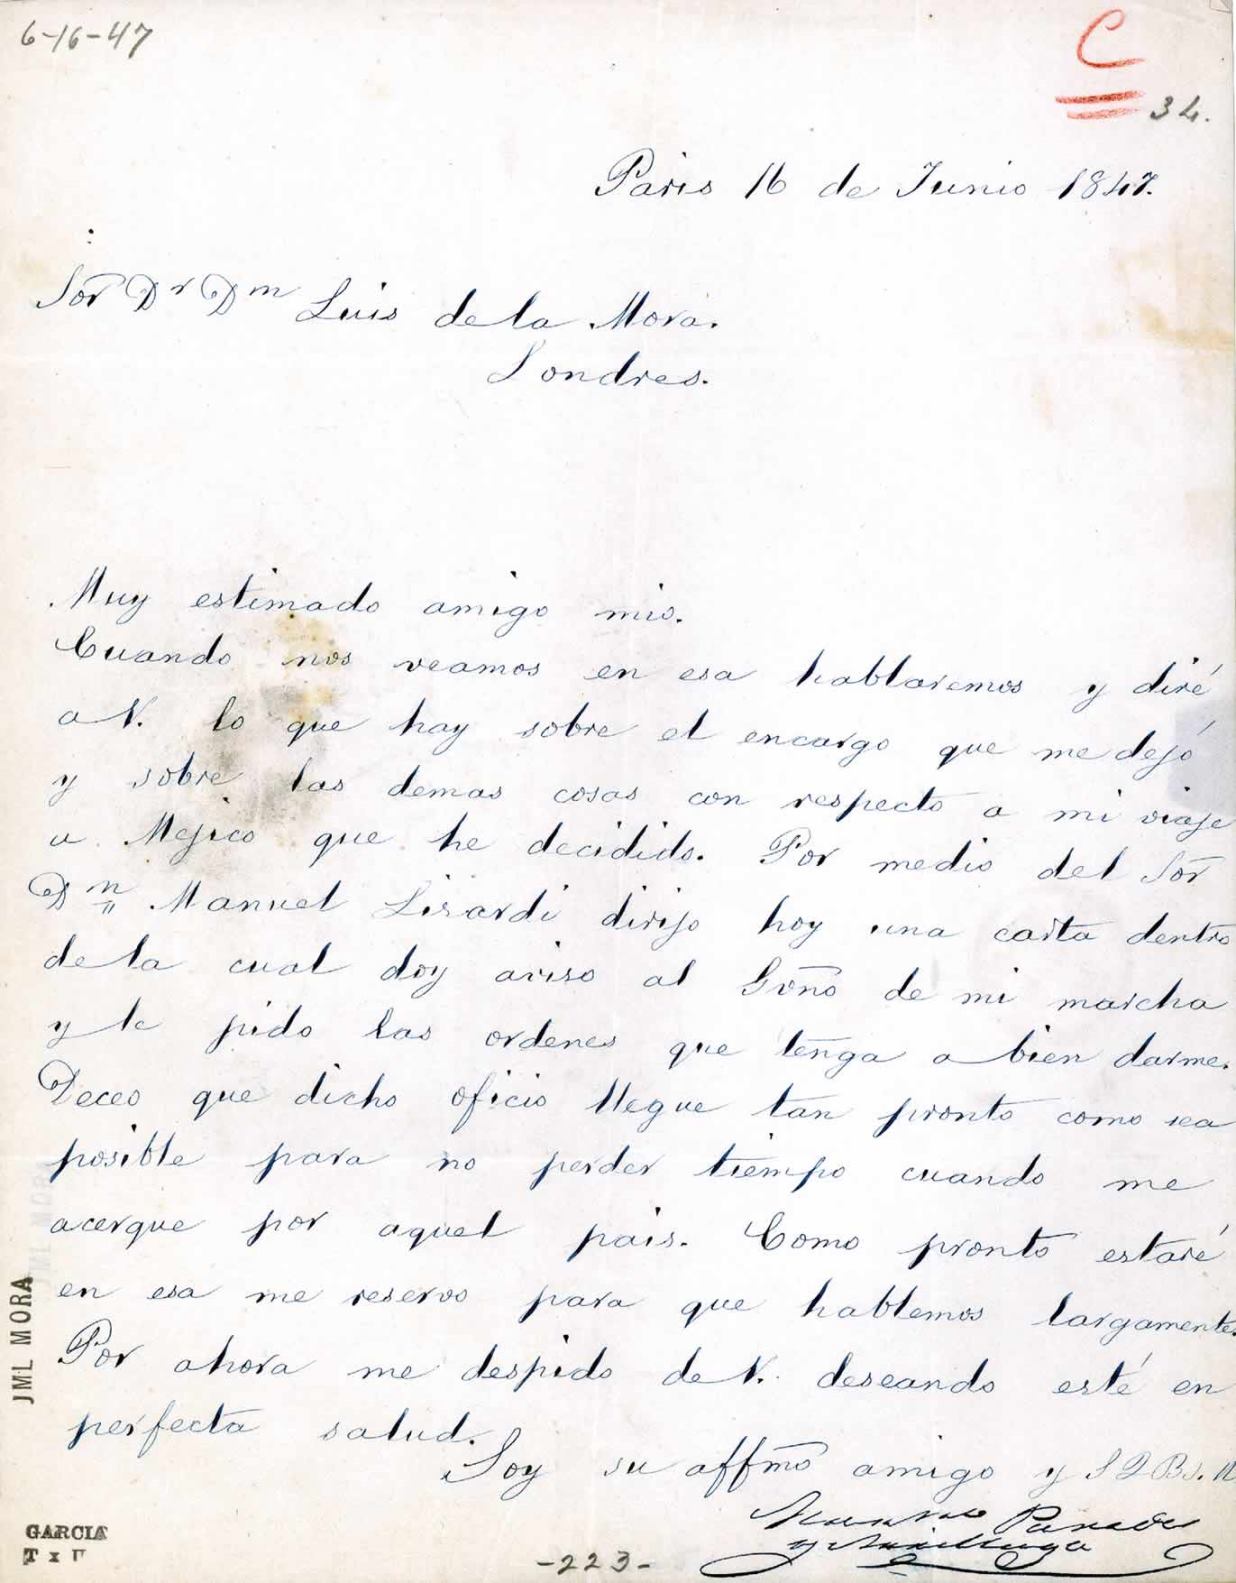 6-16-47
C
34.
Paris 16 de Junio 1847.
Sor Dr Dn Luis de la Mora.
Londres.
Muy estimado amigo mio.
Cuando nos veamos en esa hablaremos y diré
a V. lo que hay sobre el encargo que me dejó
y sobre las demas cosas con respecto a mi viaje
a Mejico que he decidido. Por medio del Sor
Dn Manuel Lisardi dirijo hoy una carta dentro
de la cual doy aviso al Gvno de mi marcha
y le pido las ordenes que tenga a bien darme.
Deceo que dicho oficio llegue tan pronto como sea
posible para no perder tiempo cuando me
acerque por aquel pais. Como pronto estaré
en esa me reservo para que hablemos largamente.
Por ahora me despido de V. deseando esté en
perfecta salud.
Soy su affmo amigo y S Q B s. M
Mariano Paredes
y Arrillaga
JML MORA
GARCIA
-223-